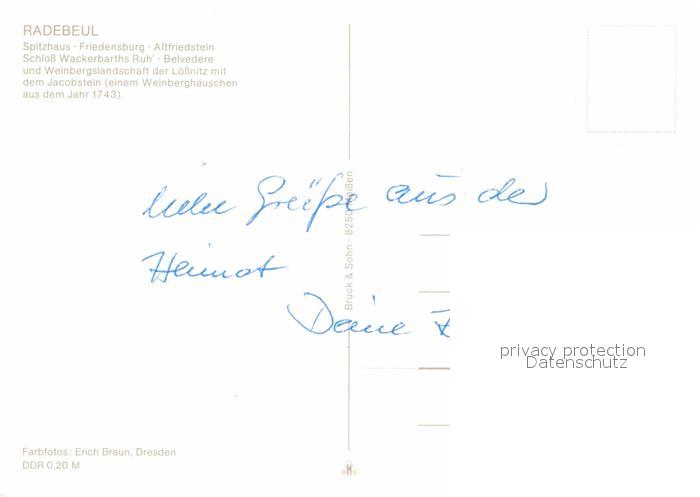 RADEBEUL
Spitzhaus · Friedensburg · Altfriedstein
Schloß Wackerbarths Ruh' · Belvedere
und Weinbergslandschaft der Lößnitz mit
dem Jacobstein (einem Weinberghäuschen
aus dem Jahr 1743).
Grüße aus der
Heimat
Deine
Brück & Sohn · 8250 Meißen
privacy protection
Datenschutz
Farbfotos: Erich Braun, Dresden
DDR 0,20 M